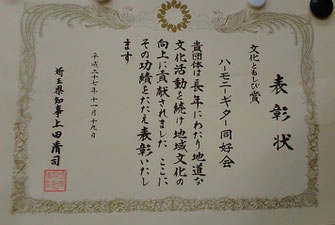 表彰状
文化ともしび賞
ハーモニーギター同好会
貴団体は長年にわたり地道な
文化活動を続け地域文化の
向上に貢献されました ここに
その功績をたたえ表彰いたし
ます
平成二十七年十一月十九日
埼玉県知事上田清司